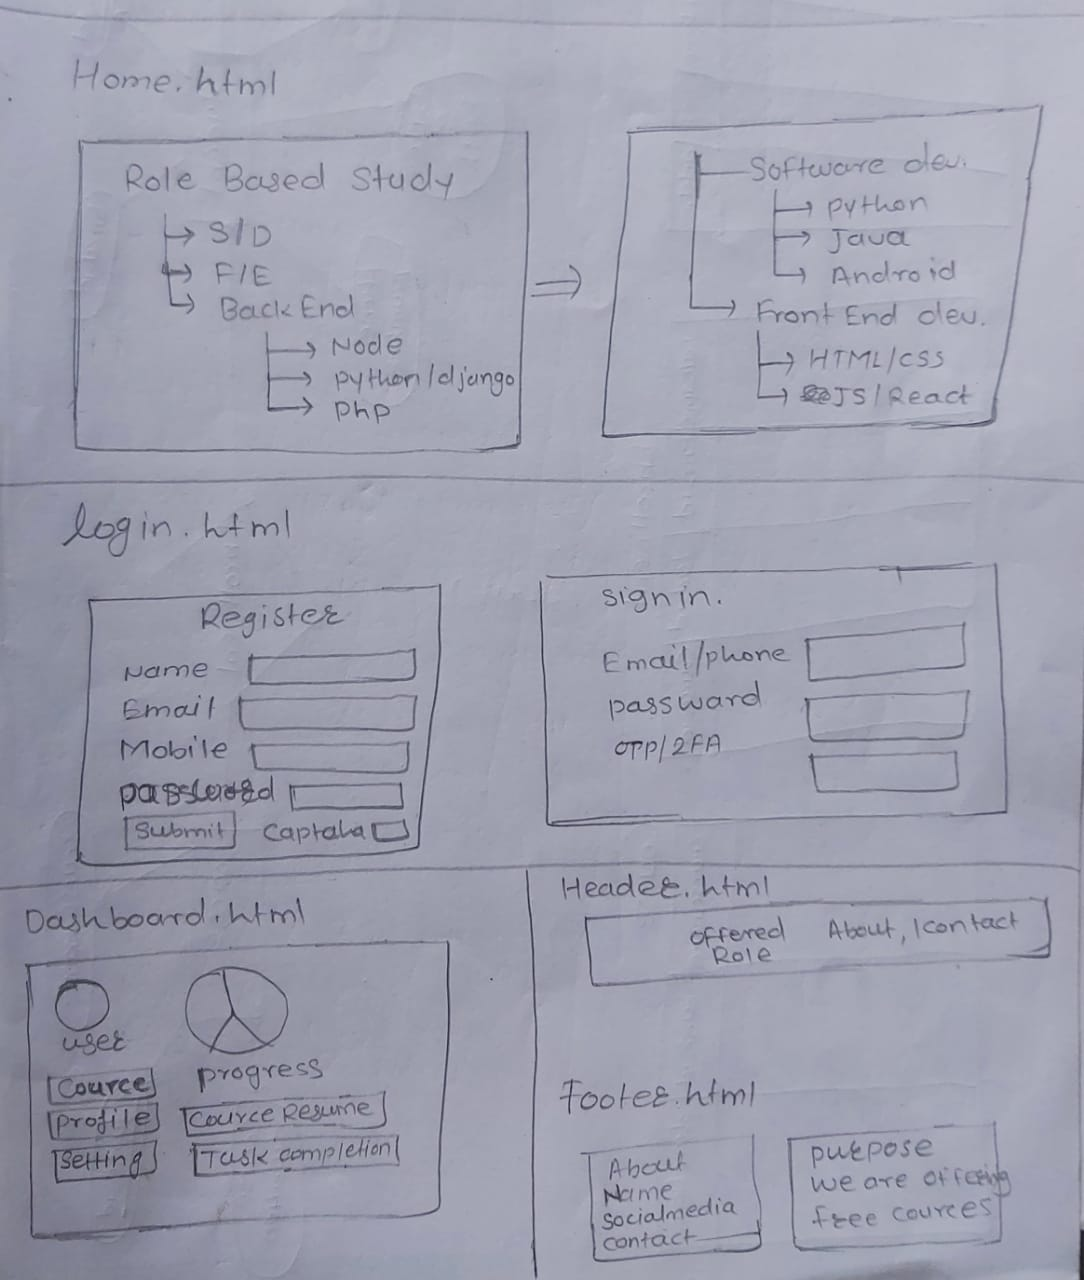 Home.html
Role Based Study
S/D
F/E
Back End
Node
python/django
php
Software dev.
python
Java
Android
Front End dev.
HTML/CSS
JS/React
login.html
Register
Name
Email
Mobile
password
Submit Captaha
signin.
Email/phone
passward
OTP/2FA
Dashboard.html
user
progress
Cource
Profile
Setting
Cource Resume
Task completion
Header.html
offered Role
About, /contact
Footer.html
About
Name
socialmedia
contact
purpose
we are offering
free cources